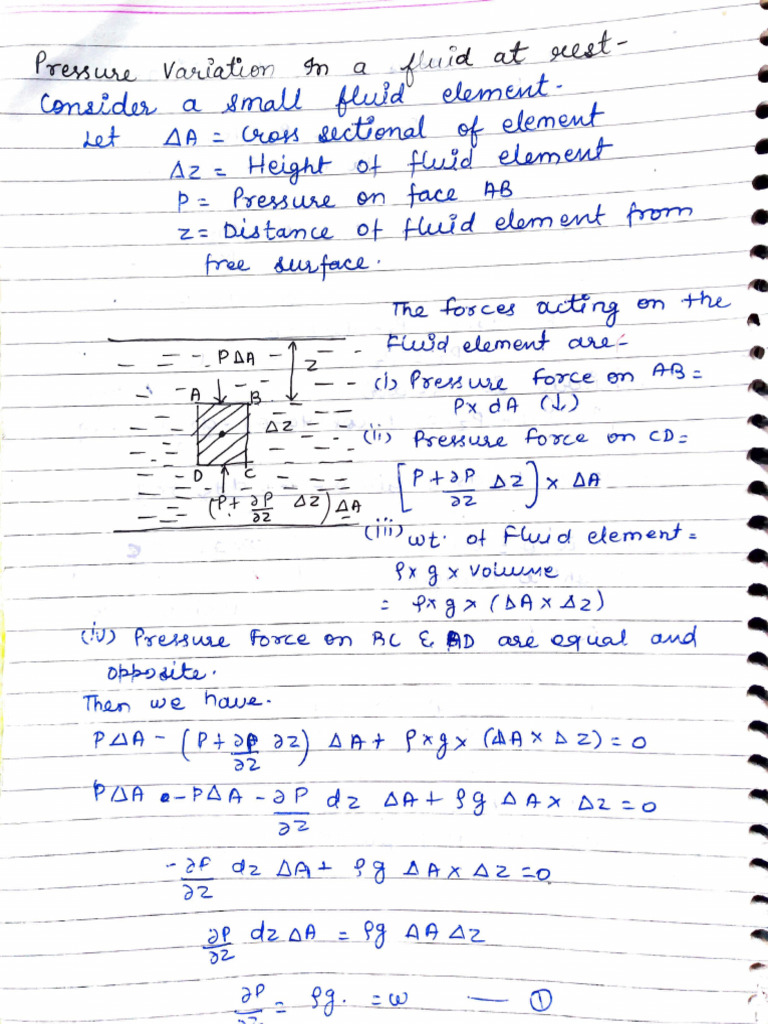 Pressure Variation In a fluid at rest-
Consider a small fluid element.
Let ΔA = Cross sectional of element
ΔZ = Height of fluid element
P = Pressure on face AB
Z = Distance of fluid element from
free surface.
The forces acting on the
Fluid element are-
(i) Pressure force on AB =
P x dA (↓)
(ii) Pressure force on CD =
[P + ∂P/∂Z ΔZ] x ΔA
(iii) wt. of Fluid element =
ρ x g x volume
= ρ x g x (ΔA x ΔZ)
PΔA
Z
A B
ΔZ
D C
(P + ∂P/∂Z ΔZ) ΔA
(iv) Pressure force on BC & AD are equal and
opposite.
Then we have.
PΔA - (P + ∂P/∂Z ∂Z) ΔA + ρ x g x (ΔA x ΔZ) = 0
PΔA - PΔA - ∂P/∂Z dz ΔA + ρg ΔA x ΔZ = 0
- ∂P/∂Z dz ΔA + ρg ΔA x ΔZ = 0
∂P/∂Z dz ΔA = ρg ΔA ΔZ
∂P/∂Z = ρg. = w — ①